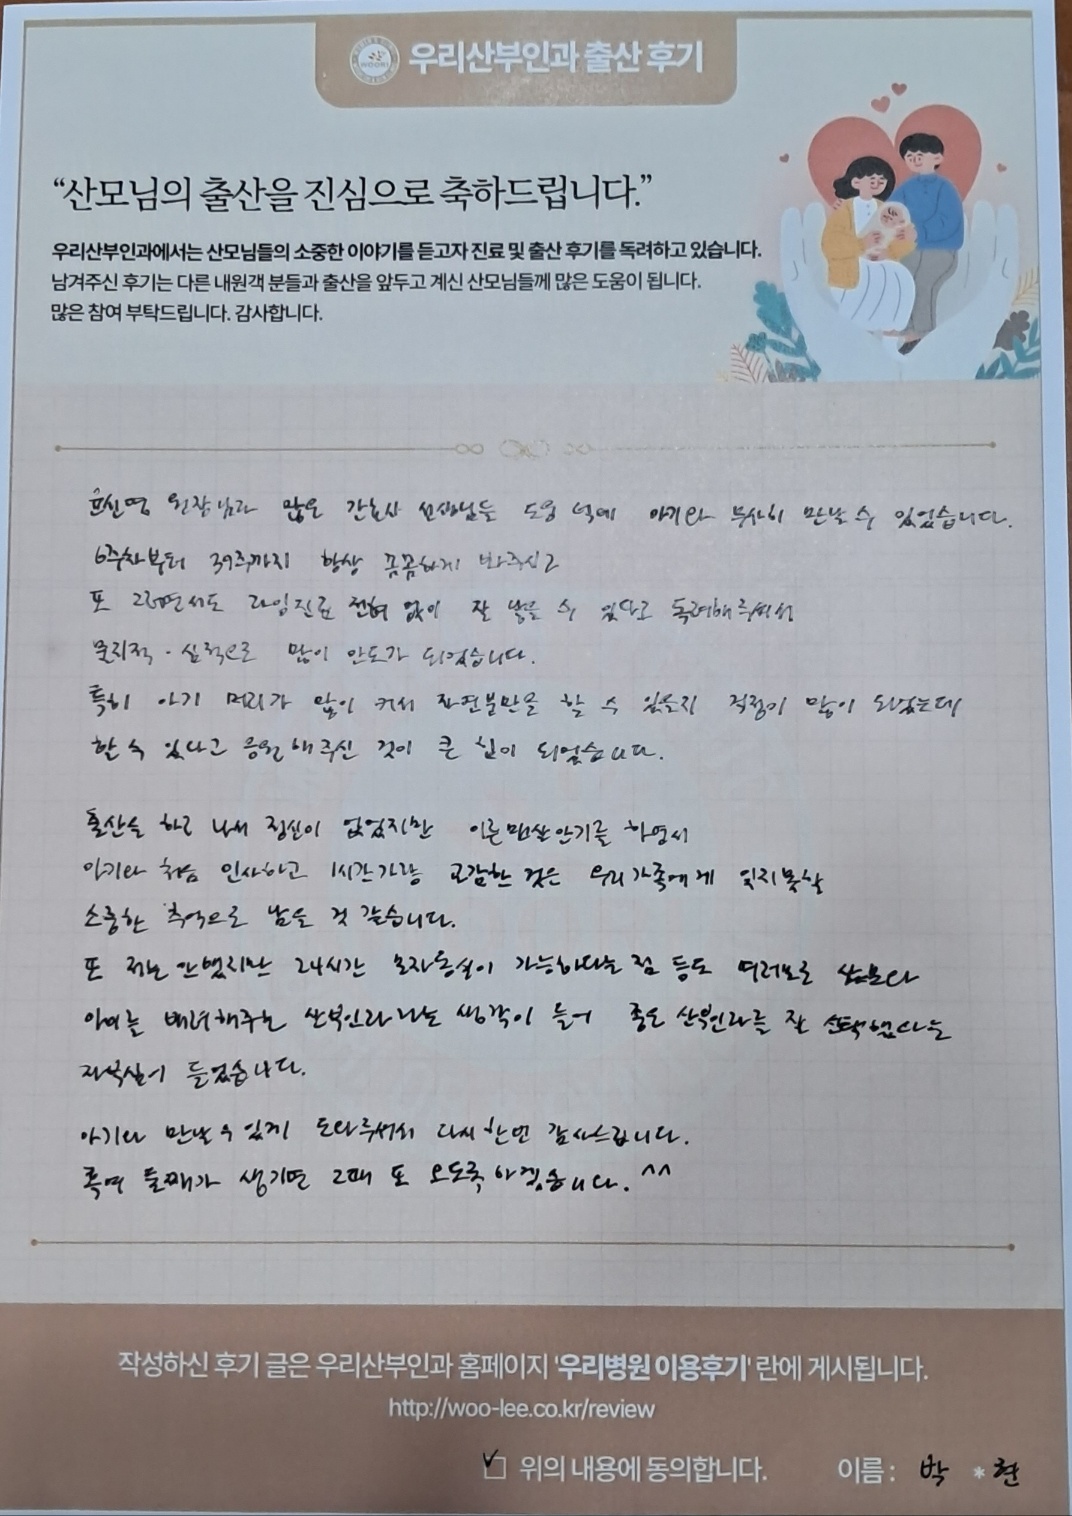 우리산부인과 출산 후기
“산모님의 출산을 진심으로 축하드립니다.”
우리산부인과에서는 산모님들의 소중한 이야기를 듣고자 진료 및 출산 후기를 독려하고 있습니다.
남겨주신 후기는 다른 내원객 분들과 출산을 앞두고 계신 산모님들께 많은 도움이 됩니다.
많은 참여 부탁드립니다. 감사합니다.
윤신영 원장님과 많은 간호사 선생님들 도움 덕에 아기와 무사히 만날 수 있었습니다.
6주차부터 39주까지 항상 꼼꼼하게 봐주시고
또 그러면서도 과잉진료 전혀 없이 잘 낳을 수 있다고 독려해주셔서
물리적·심적으로 많이 안도가 되었습니다.
특히 아기 머리가 많이 커서 자연분만을 할 수 있을지 걱정이 많이 되었는데
할 수 있다고 응원해주신 것이 큰 힘이 되었습니다.
출산을 하고 나서 정신이 없었지만 이른 안기를 하면서
아기와 처음 인사하고 1시간가량 교감한 것은 우리 가족에게 잊지못할
소중한 추억으로 남을 것 같습니다.
또 저는 안했지만 24시간 모자동실이 가능하다는 점 등도 여러모로 산모와
아이를 배려해주는 산부인과라는 생각이 들어 좋은 산부인과를 잘 선택했다는
자부심이 들었습니다.
아기와 만날 수 있게 도와주셔서 다시 한번 감사드립니다.
혹여 둘째가 생기면 그때 또 오도록 하겠습니다. ^^
작성하신 후기 글은 우리산부인과 홈페이지 '우리병원 이용후기' 란에 게시됩니다.
http://woo-lee.co.kr/review
위의 내용에 동의합니다. 이름 : 박 * 현